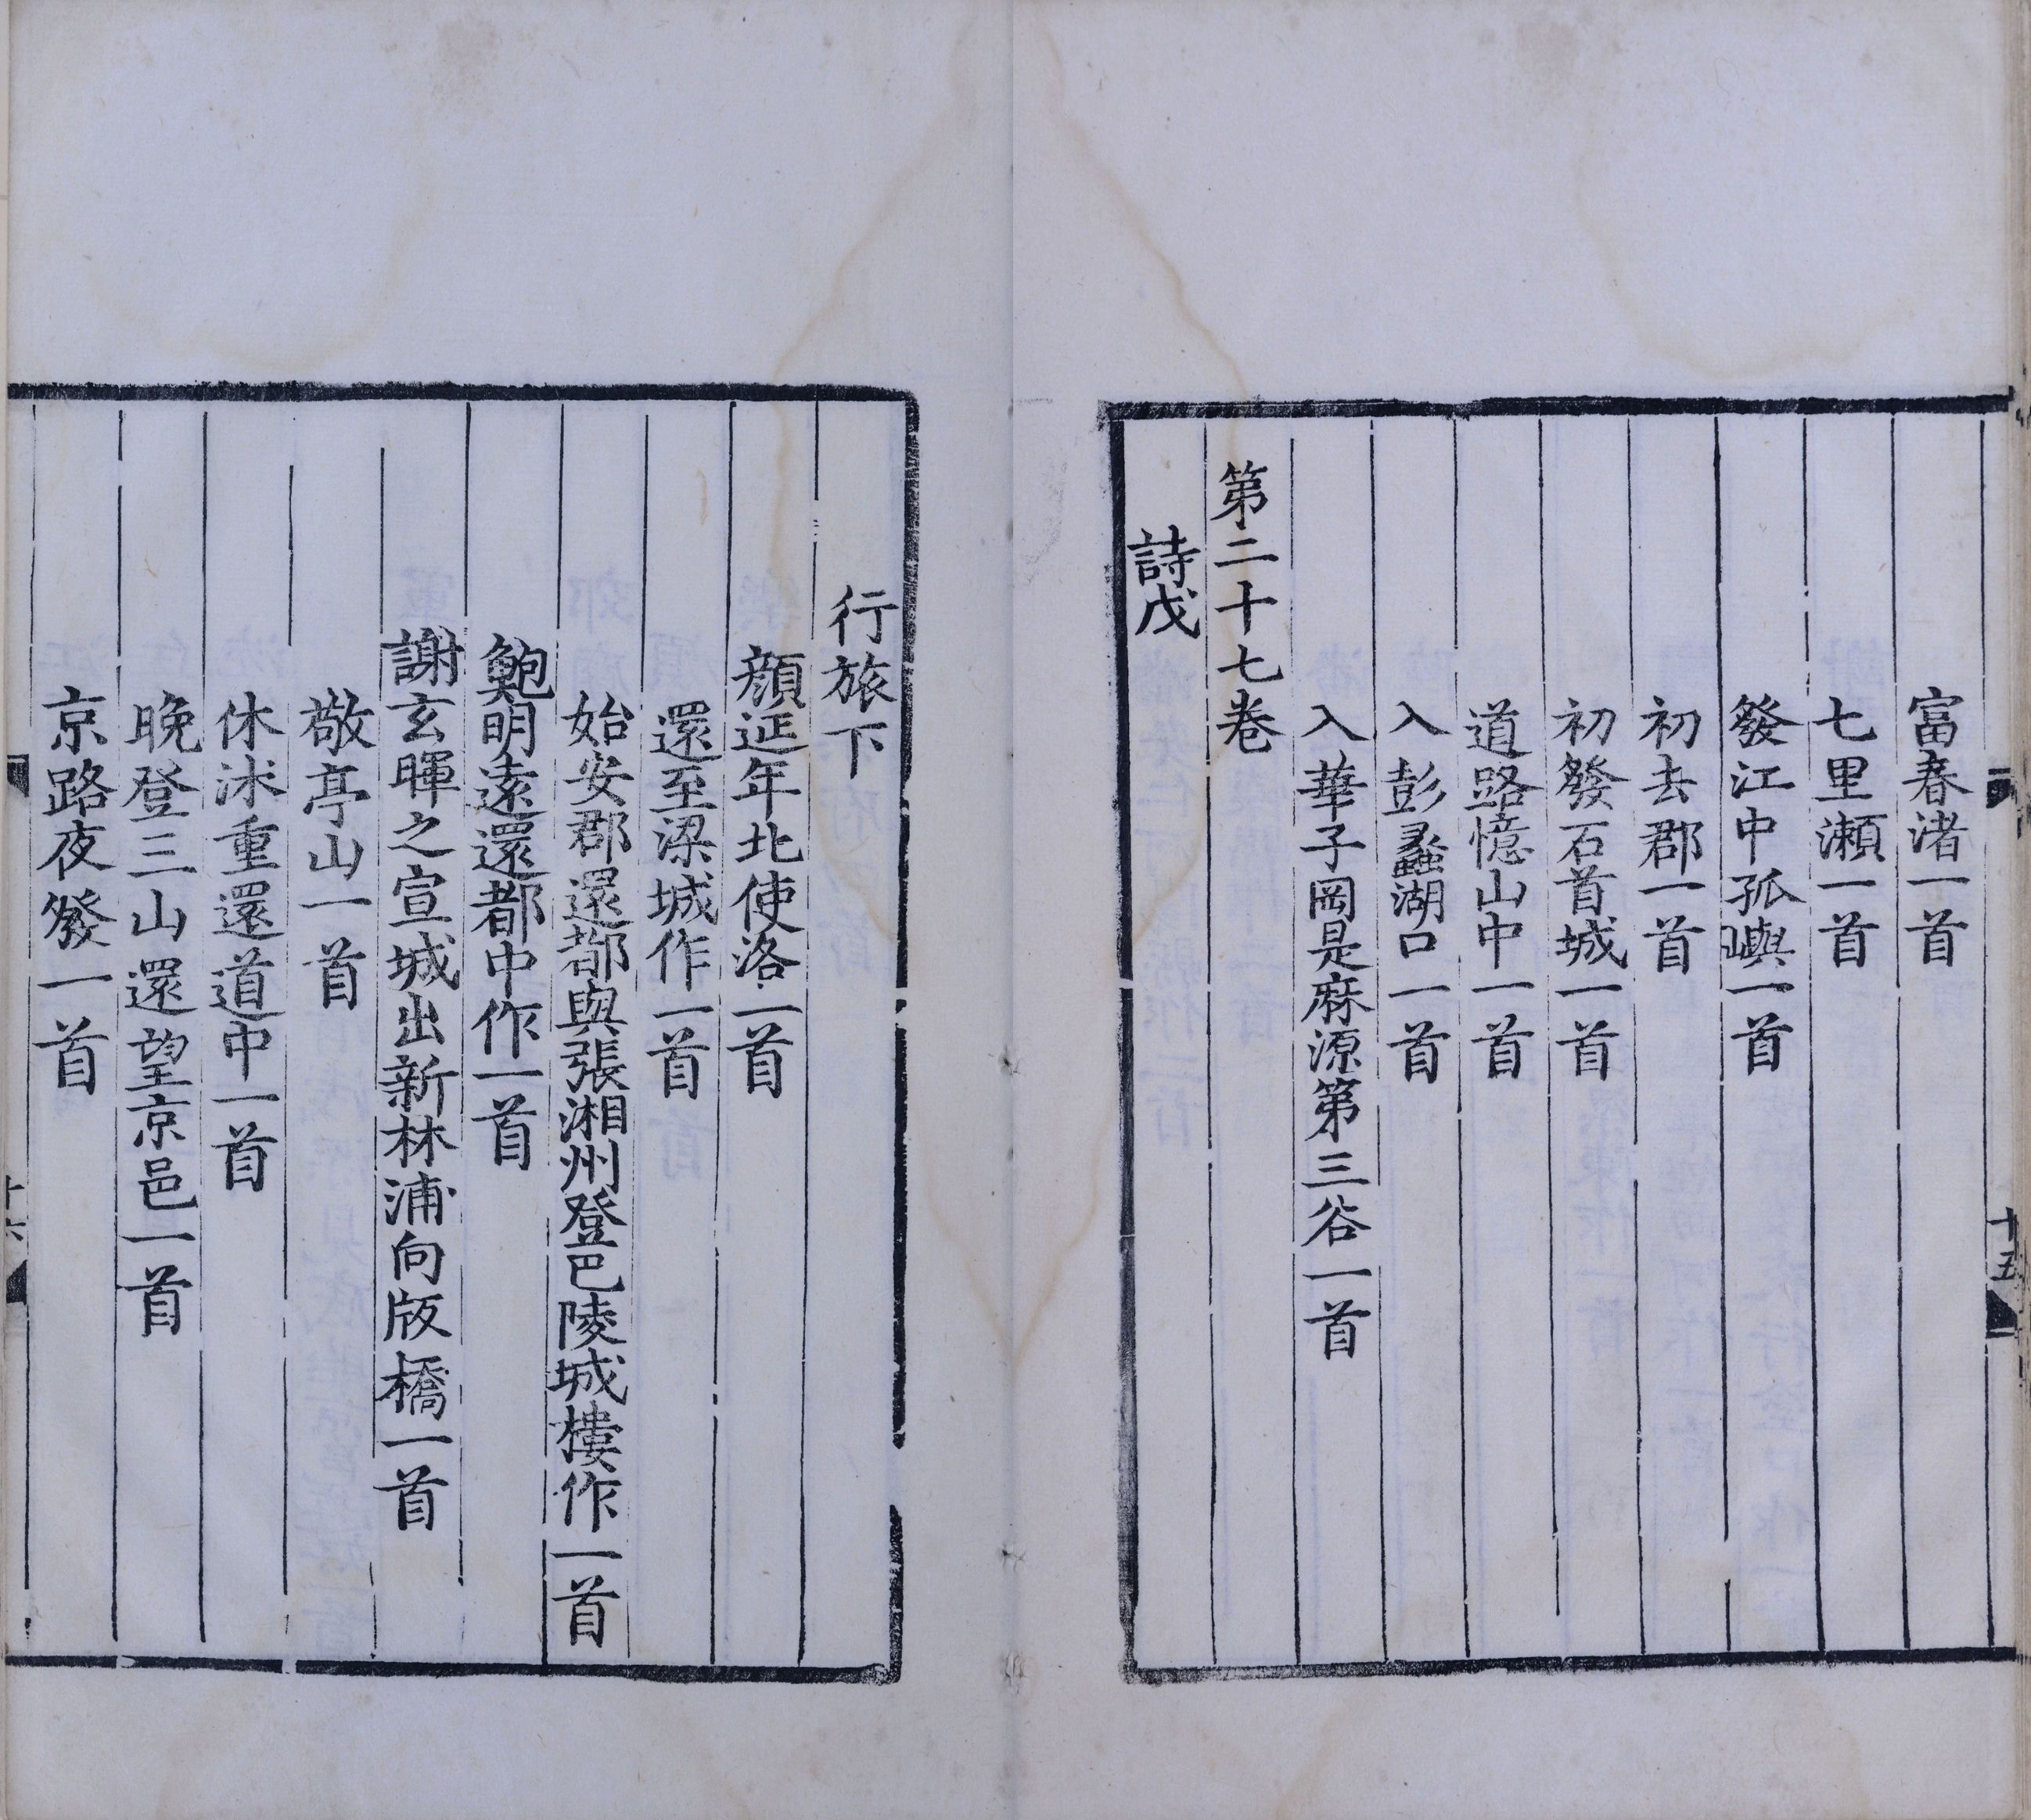 富春渚一首
七里瀨一首
發江中孤嶼一首
初去郡一首
初發石首城一首
道路憶山中一首
入彭蠡湖口一首
入華子岡是麻源第三谷一首
第二十七卷
詩戊
十五
行旅下
顔延年北使洛一首
還至梁城作一首
始安郡還都與張湘州登巴陵城樓作一首
鮑明遠還都中作一首
謝玄暉之宣城出新林浦向版橋一首
敬亭山一首
休沐重還道中一首
晚登三山還望京邑一首
京路夜發一首
十六